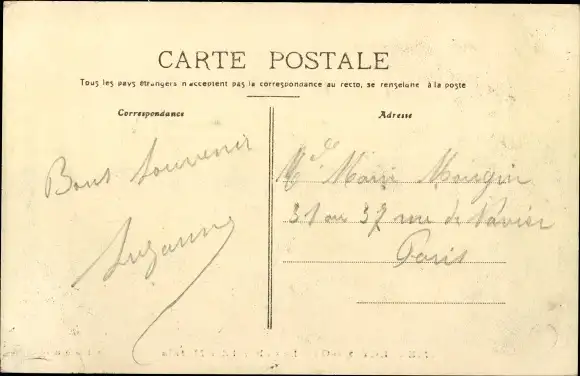 CARTE POSTALE
Tous les pays étrangers n'acceptent pas la correspondance au recto, se renseigner à la poste
Correspondance
Adresse
Bons Souvenir
Suzanne
Mlle Marie Mougin
31 ou 37 rue de
Paris